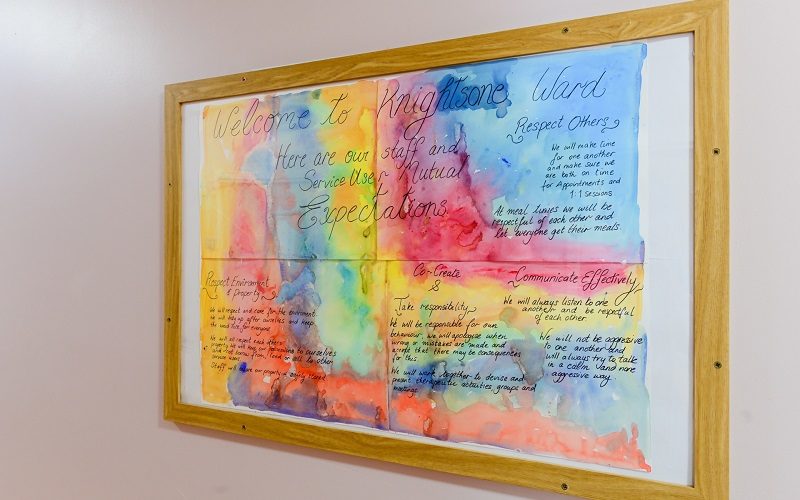 Welcome to Knightsone Ward
Here are our staff and
Service User Mutual
Expectations
Respect Others
We will make time
for one another
and make sure we
are both on time
for Appointments and
1:1 Sessions
At meal times we will be
respectful of each other and
let everyone get their meals.
Respect Enviroment
& Property
We will respect and care for the enviroment.
We will tidy up after ourselves and keep
the ward for everyone
We will all respect each others
property. We will keep our belongings to ourselves
and not borrow from, Trade or sell to other
service users
Staff will ensure our property is safely stored
Co-Create
&
Take responsibility
We will be responsible for our
behaviour, we will apologise when
wrong or mistakes are made and
accept that there may be consequences
for this.
We will work together to devise and
present therapeutic activities groups and
meetings.
Communicate Effectively
We will always listen to one
another and be respectful
of each other
We will not be aggressive
to one another and
will always try to talk
in a calm and none
aggressive way.